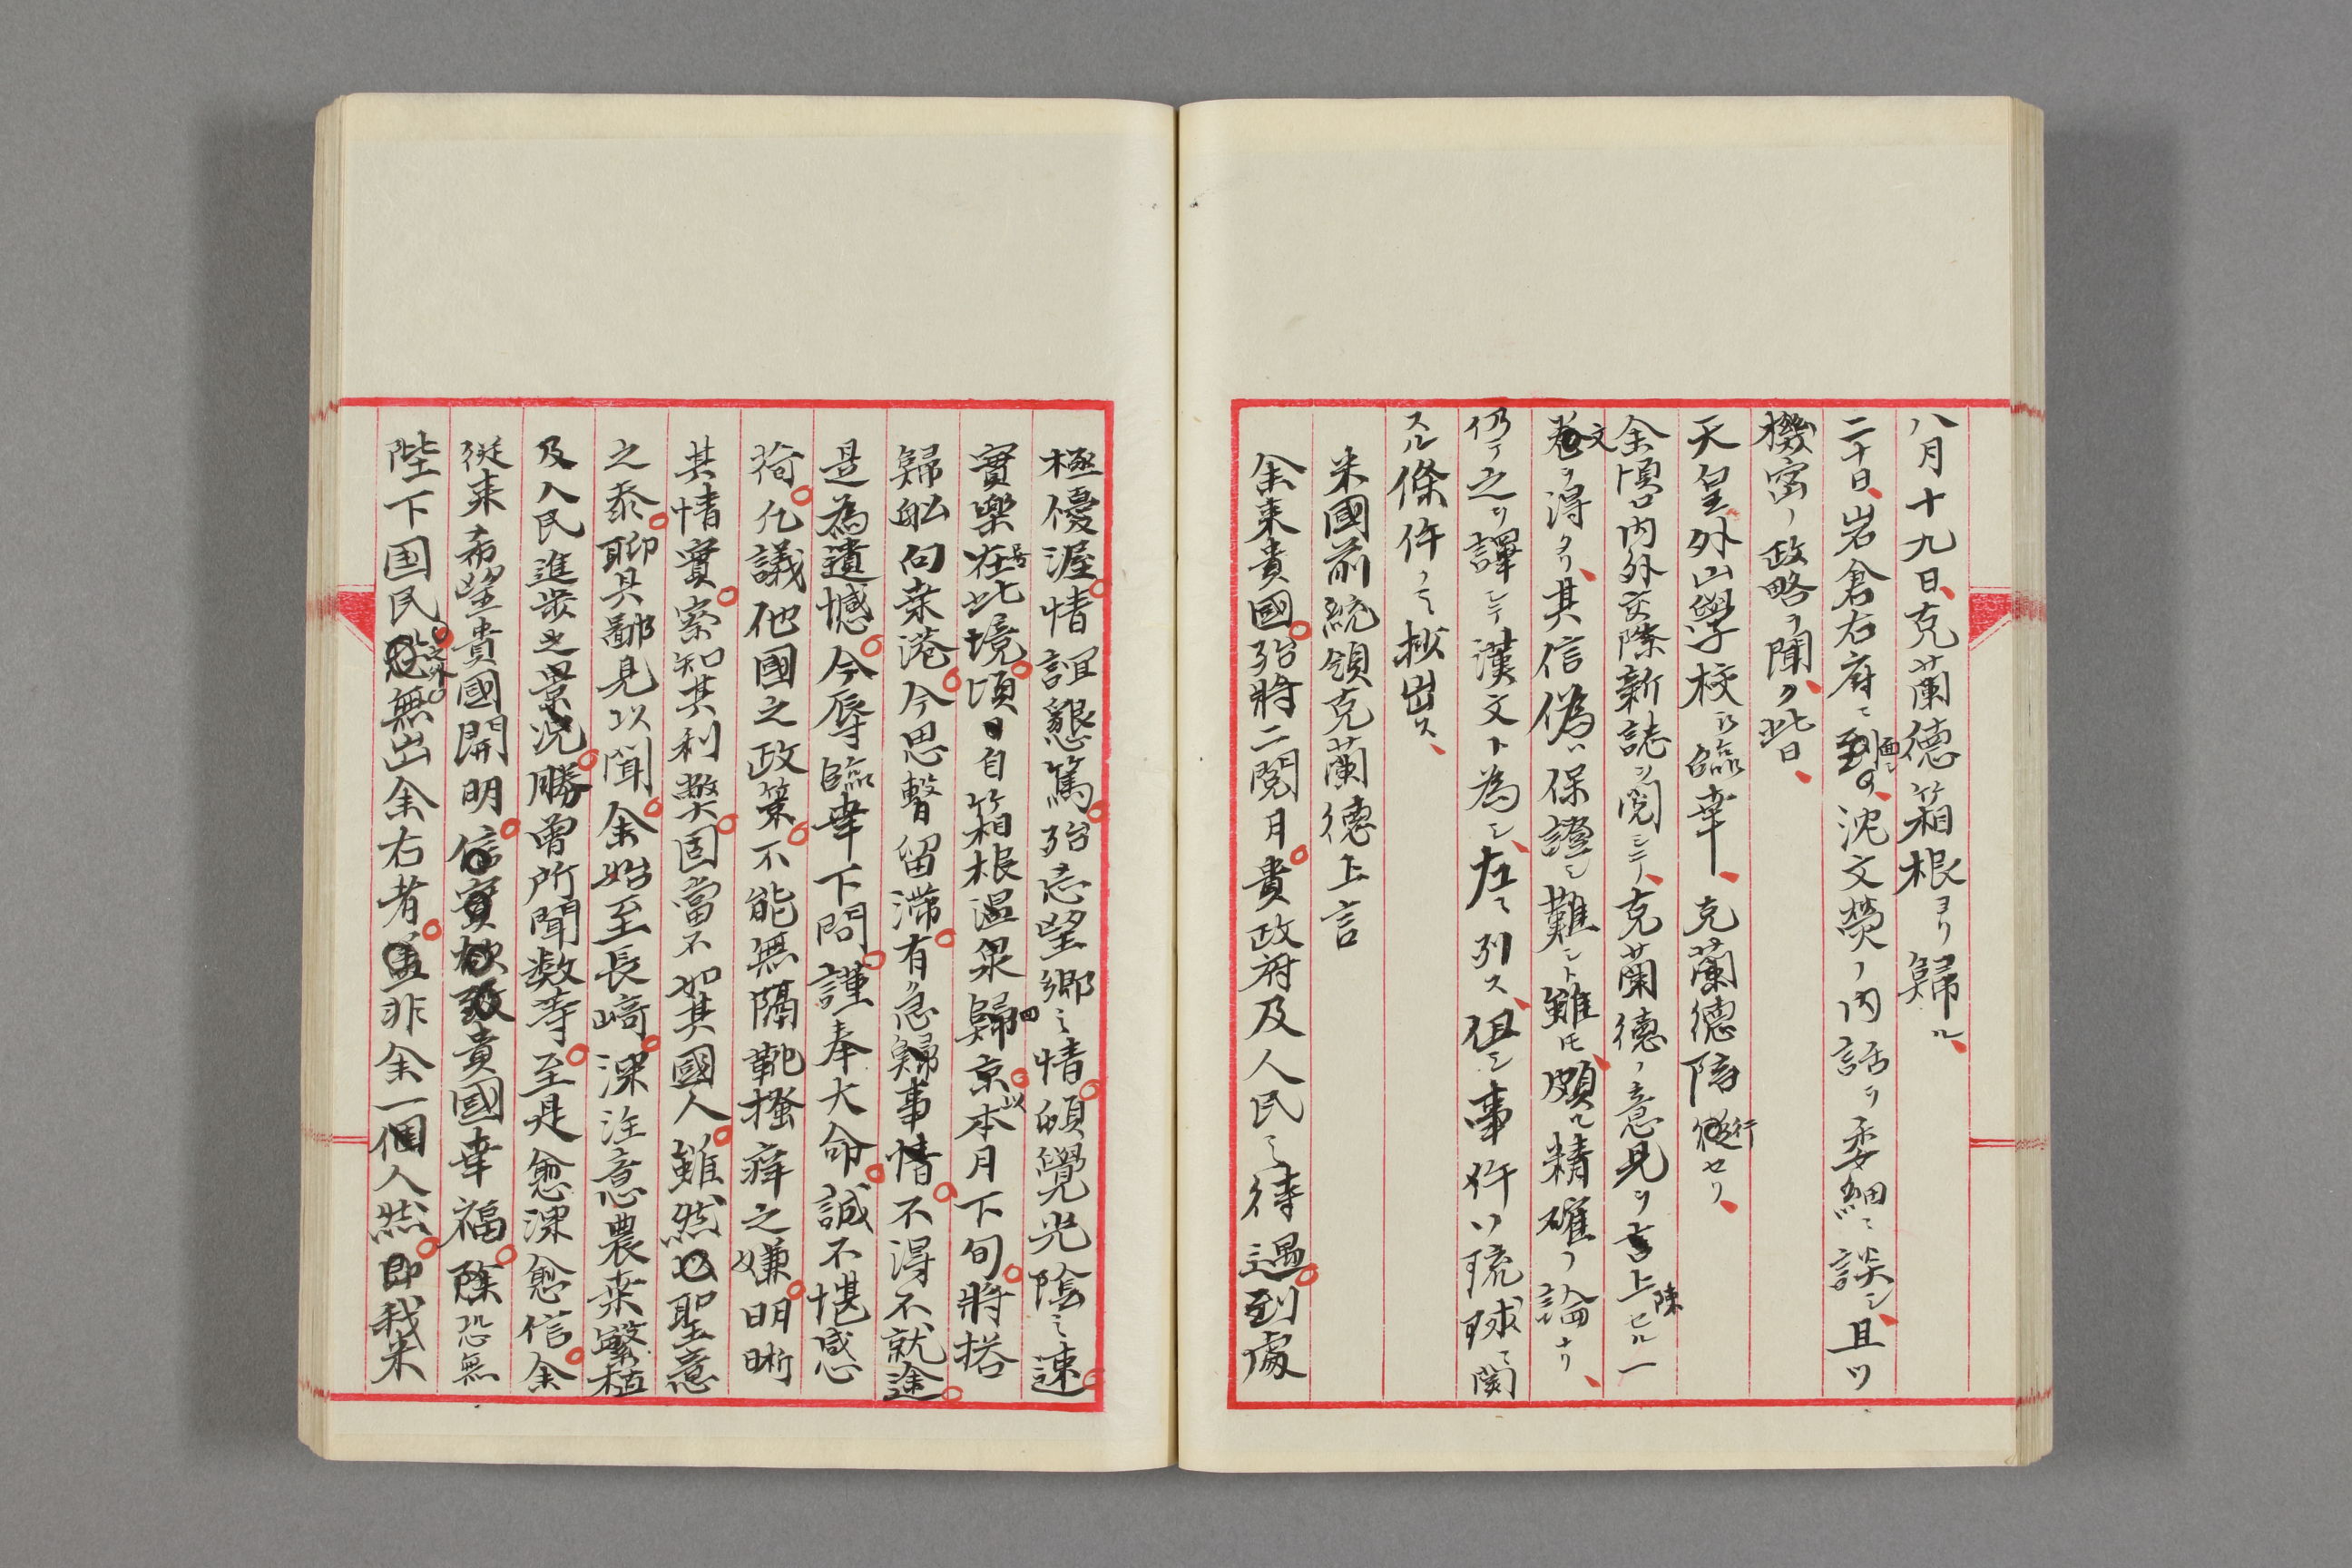 八月十九日、克蘭徳箱根ヨリ歸ル、
二十日、岩倉右府ニ面シ、沈文熒ノ内話ヲ委細ニ談シ、且ツ
機密ノ政略ヲ聞ク、此日、
天皇外山學校ニ臨幸、克蘭徳陪行セリ、
余頃日内外交際新誌ヲ閲シテ、克蘭徳ノ意見ヲ言上陳セル一
文ヲ得タリ、其信偽ハ保證シ難シト雖モ、頗ル精確ノ論ナリ、
仍テ之ヲ譯シテ漢文ト為シ、左ニ列ス、但シ事件ハ琉球ニ関
スル條件ノミ抄出ス、
米國前統領克蘭徳上言
余来貴國。殆將二閲月。貴政府及人民之待遇。到處
極優渥。情誼懇篤。殆忘望郷之情。頗覺光陰之速。
實樂在此境。頃日自箱根温泉歸京。以本月下旬。將搭
歸舩向桒港。今思暫留滞。有急歸事情。不得不就途。
是為遺憾。今辱臨幸下問。謹奉大命。誠不堪感
荷。凢議他國之政策。不能無隔靴掻痒之嫌。明晰
其情實。察知其利弊。固當不如其國人。雖然聖意
之泰。聊具鄙見以聞。余始至長﨑。深注意農桒繁植
及人民進歩之景况。勝曽所聞数等。至是愈深愈信。余
從来希望貴國開明。貴國幸福。除恐無
陛下国民之外。無出余右者。非余一個人然。即我米